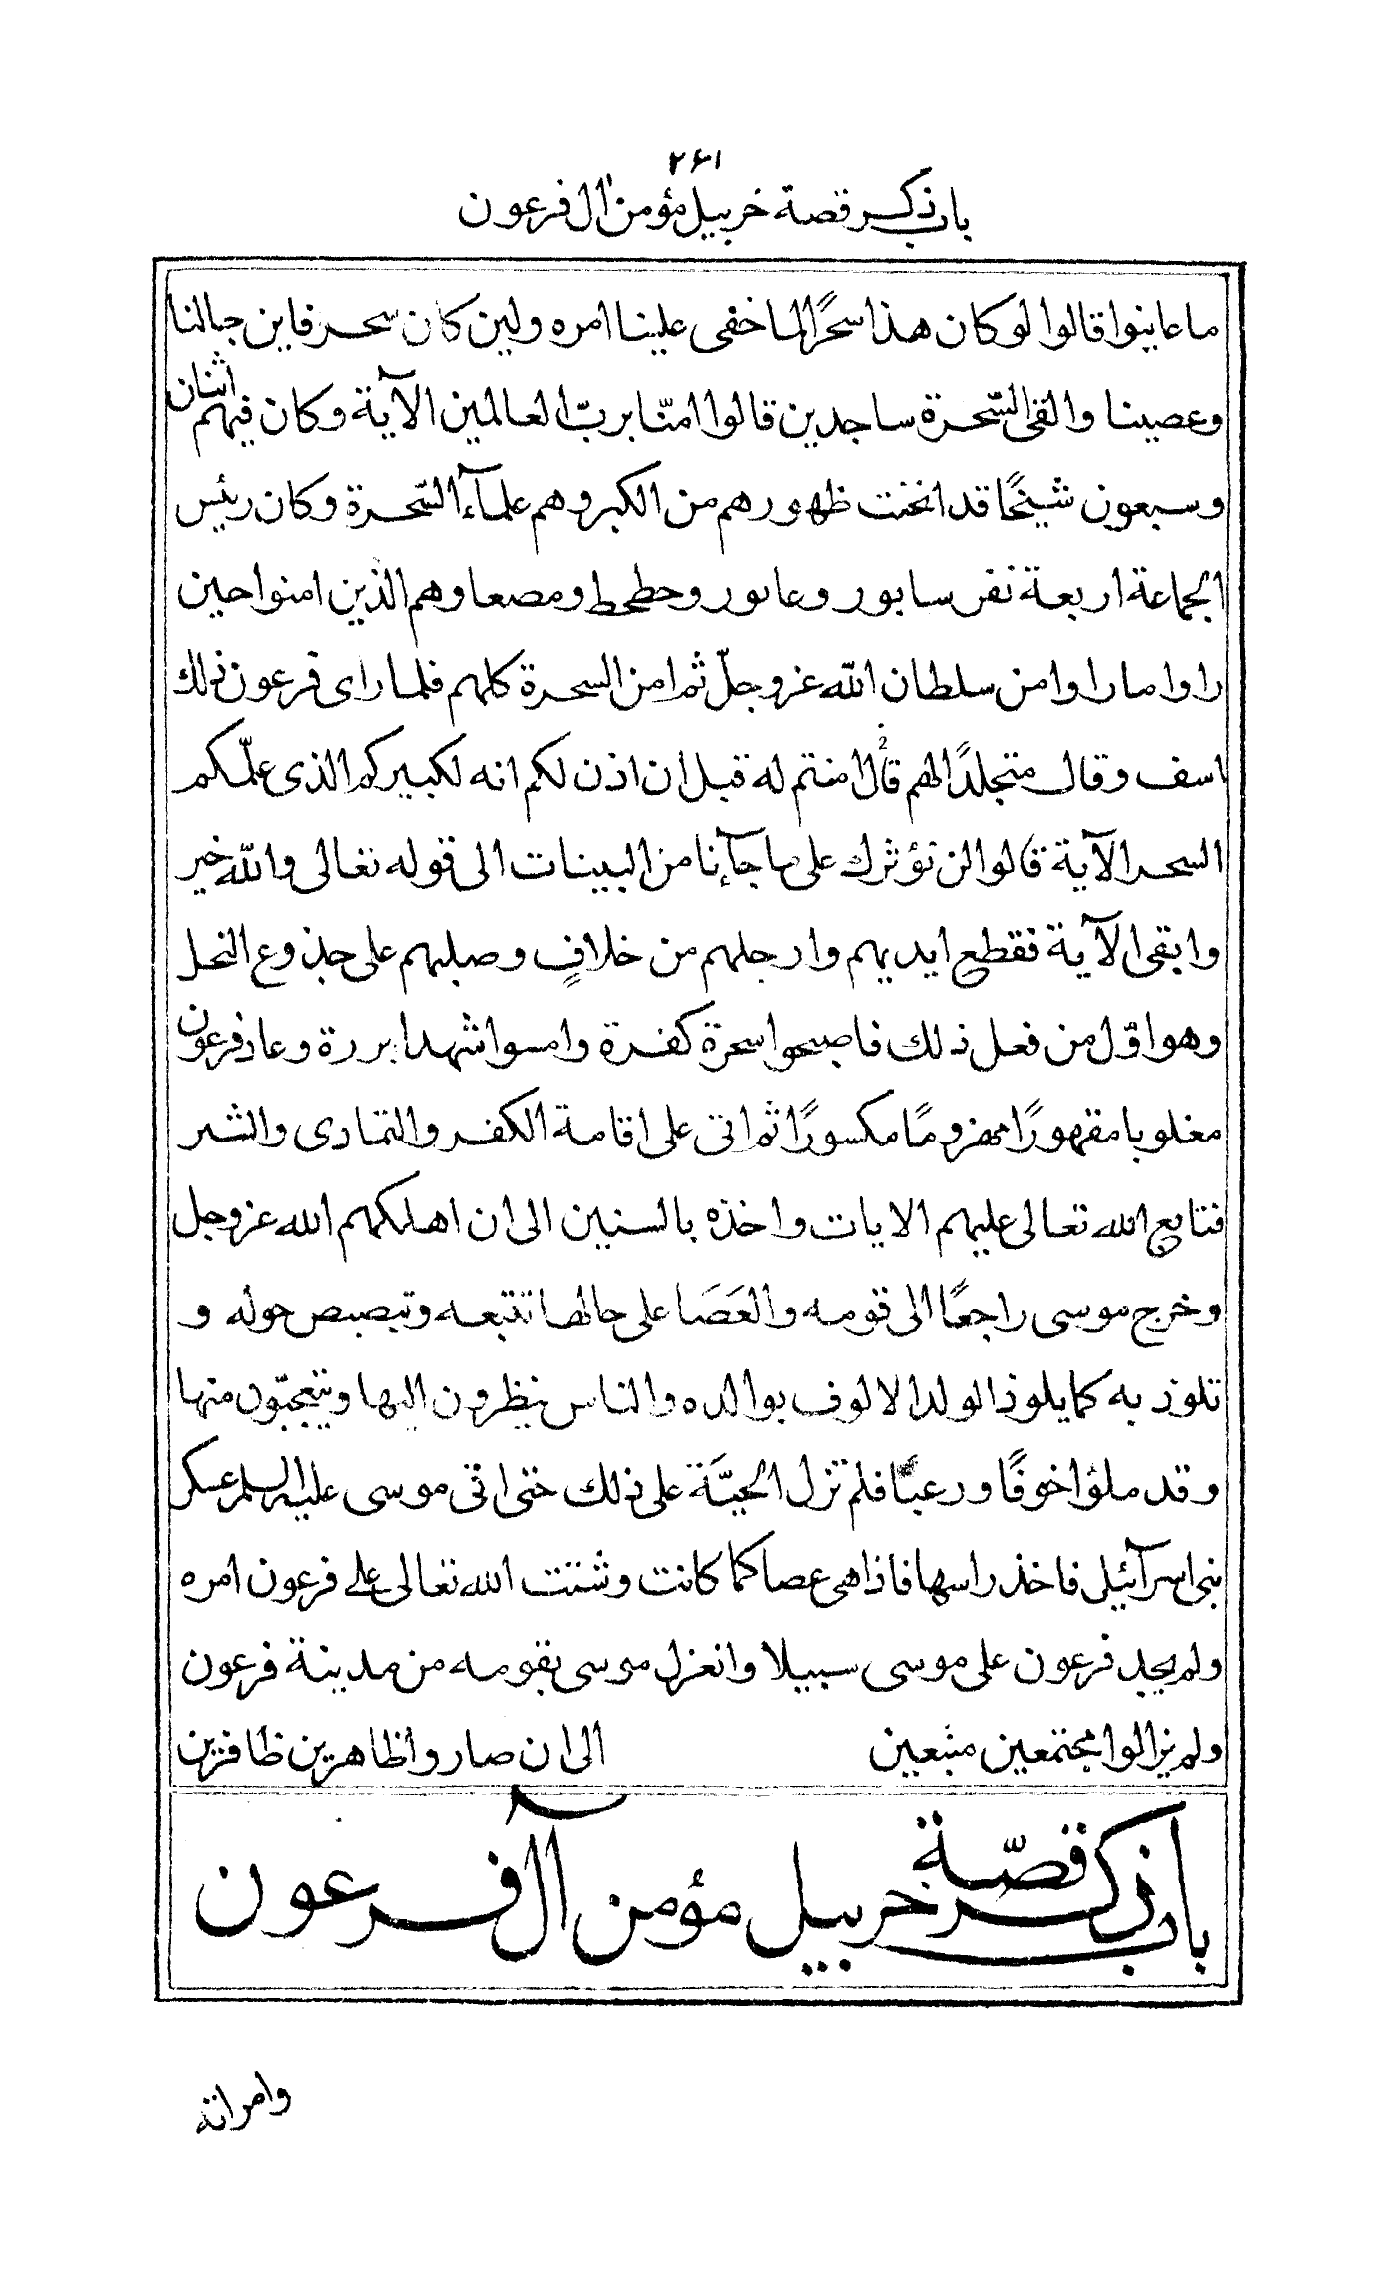 ٢٦١
باب ذكر قصة خربيل مؤمن آل فرعون
ما عاينوا قالوا لو كان هذا سحرًا لما خفى علينا امره ولين كان سحر فاين حبالنا
وعصينا والقى السّحرة ساجدين قالوا امنّا بربّ العالمين الآية وكان فيهم اثنان
وسبعون شيخًا قد انحنت ظهورهم من الكبر وهم علمآء السّحرة وكان رئيس
الجماعة اربعة نفر سابور وعاىور وحطحط ومصعا وهم الذين امنوا حين
راوا ما راوا من سلطان الله عز وجلّ ثم امن السحرة كلهم فلما راى فرعون ذلك
اسف وقال متجلدًا لهم قال امنتم له قبل ان اذن لكم انه لكبيركم الذى علّمكم
السحر الآية قالوا لن نؤثرك على ما جآءنا من البينات الى قوله تعالى والله خير
وابقى الآية فقطع ايديهم وارجلهم من خلافٍ وصلبهم على جذوع النخل
وهو اوّل من فعل ذلك فاصبحوا سحرة كفرة وامسوا شهدا بررة وعاد فرعون
مغلوبا مقهورًا مهزومًا مكسورًا ثم اتى على اقامة الكفر والتمادى والشر
فتابع الله تعالى عليهم الايات واخذه بالسنين الى ان اهلكهم الله عز وجل
وخرج موسى راجعًا الى قومه والعَصَا على حالها تتبعه وتبصبص حوله و
تلوذ به كما يلوذ الولد الالوف بوالده والناس ينظرون اليها ويتعجّبون منها
وقد ملؤا خوفًا ورعبًا فلم تزل الحيّة على ذلك حتى اتى موسى عليه السلم عسكر
بنى اسرآئيل فاخذ راسها فاذا هى عصا كما كانت وشتت الله تعالى على فرعون امره
ولم يجد فرعون على موسى سبيلا وانعزل موسى بقومه من مدينة فرعون
ولم يزالوا مجتمعين متبعين الى ان صاروا ظاهرين ظافرين
باب ذكر قصّة خربيل مؤمن آل فرعون
وامراته